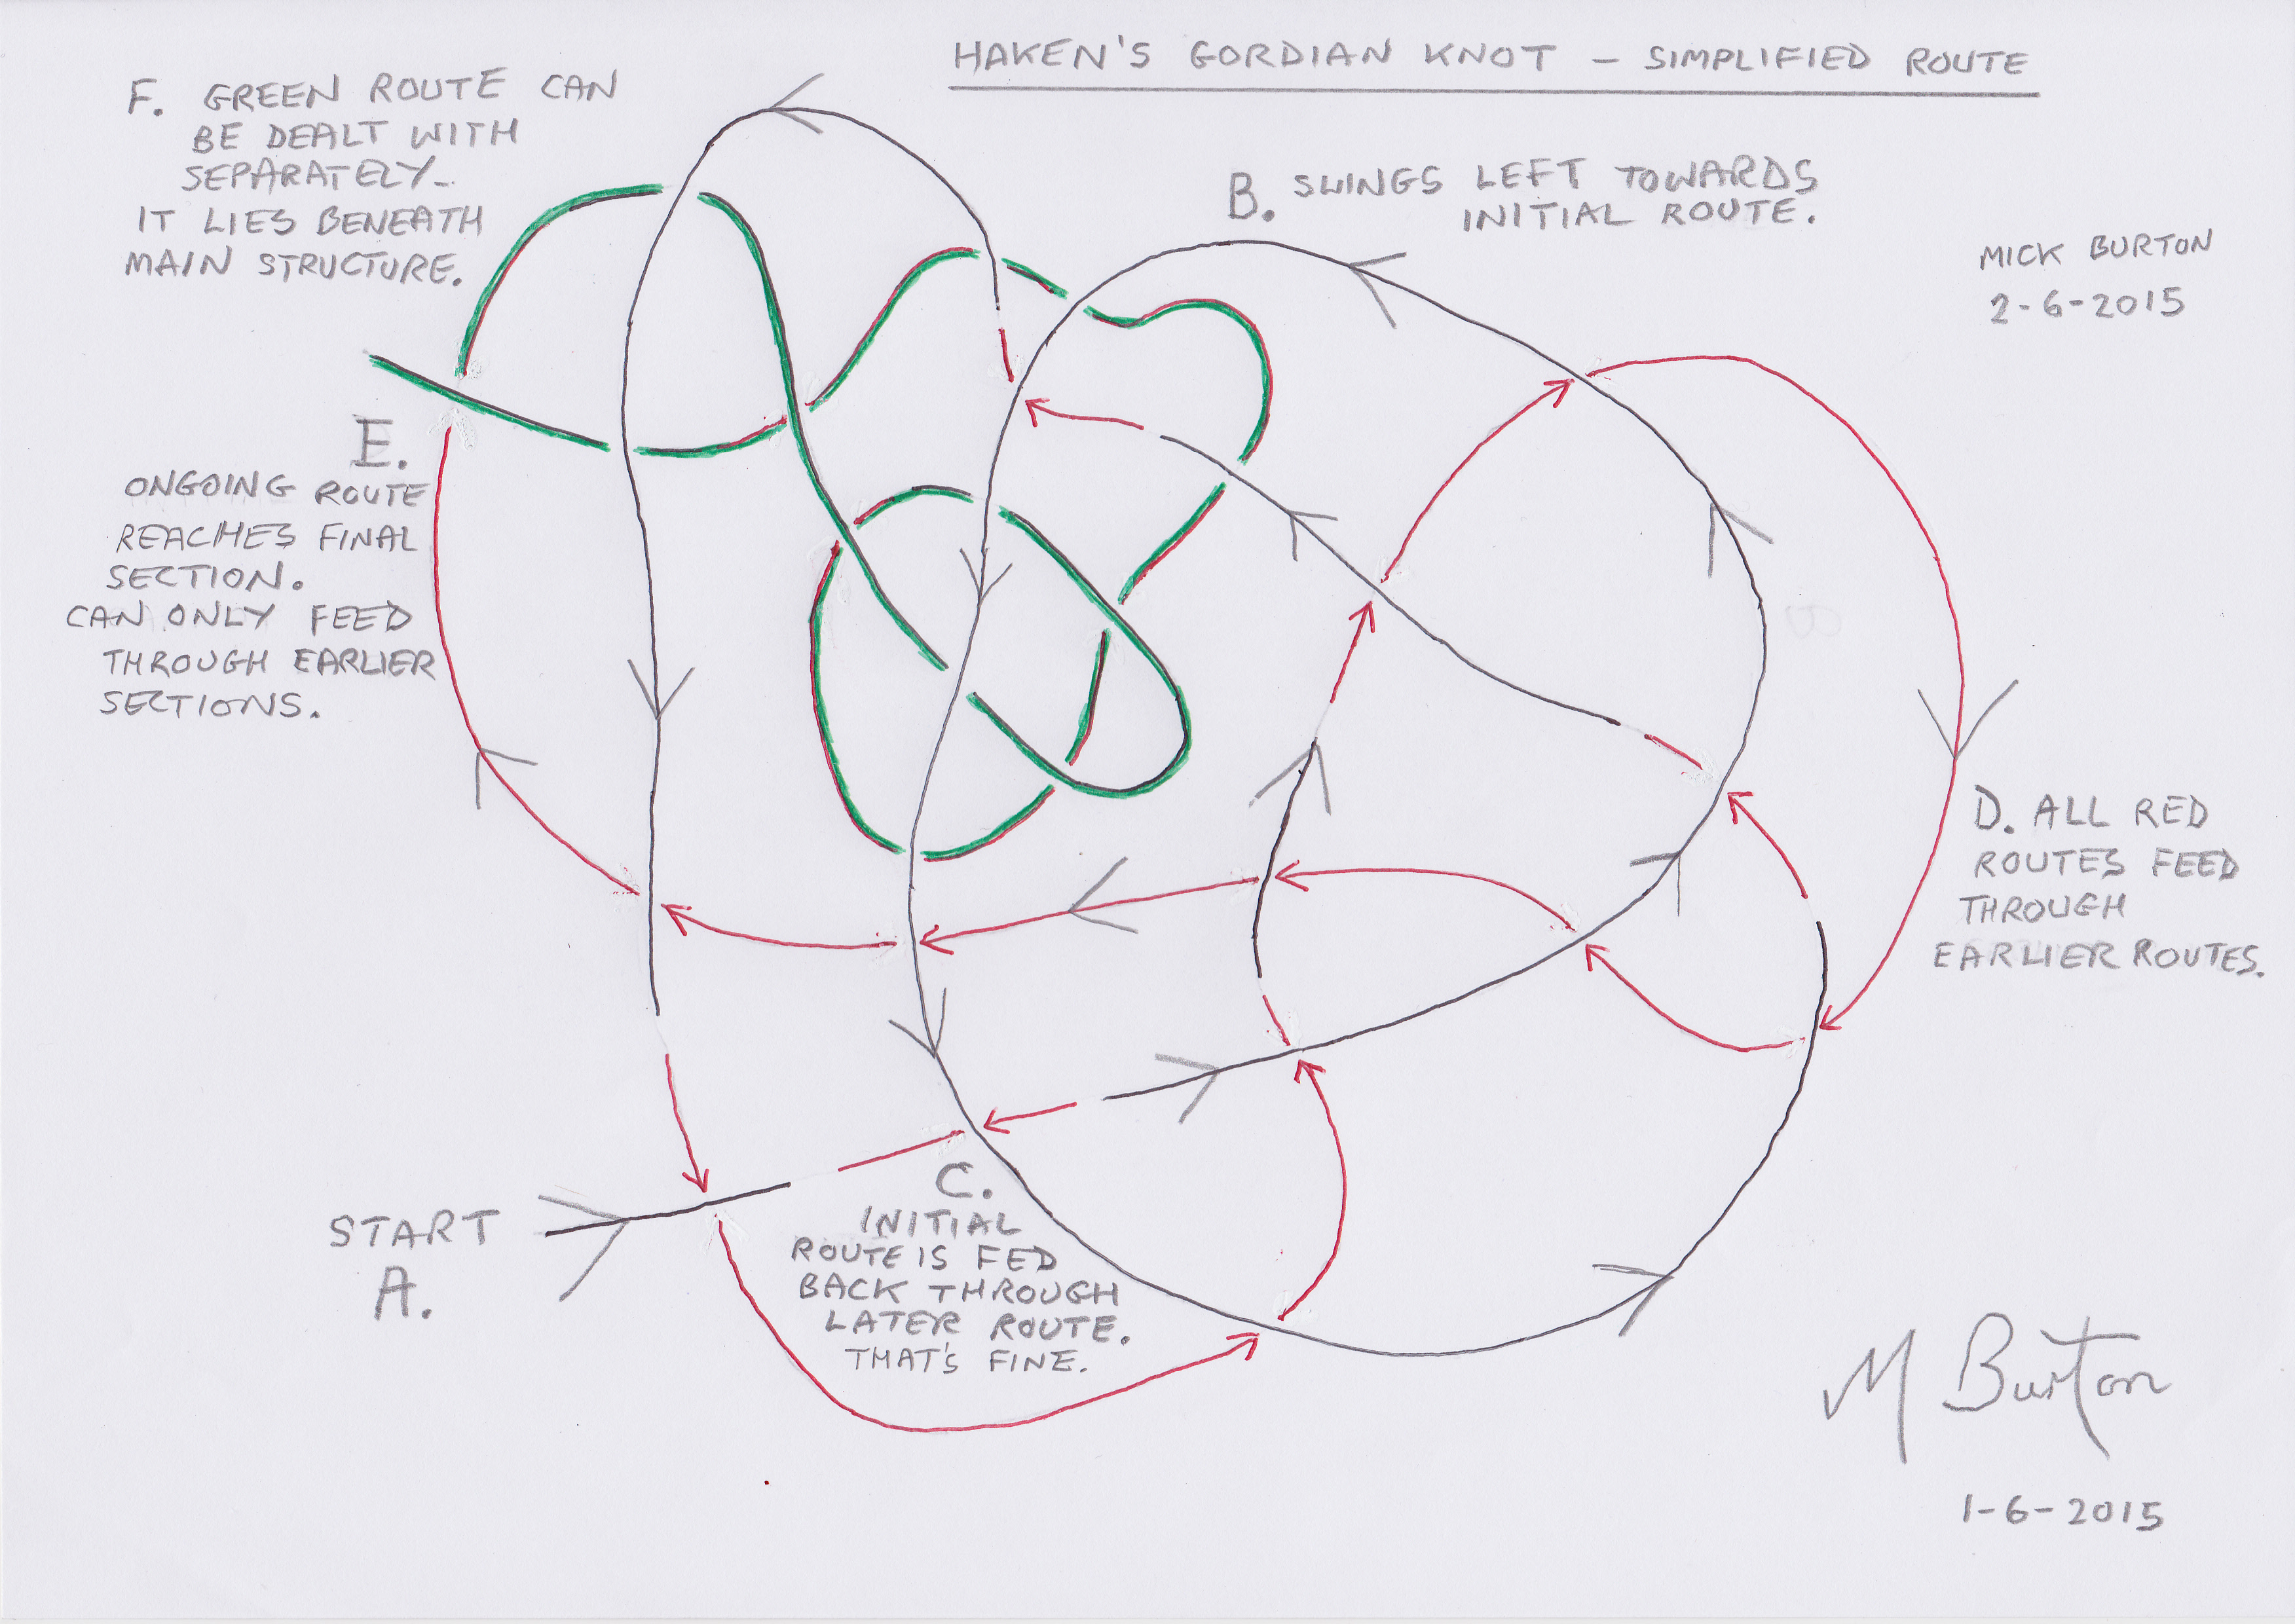 HAKEN'S GORDIAN KNOT – SIMPLIFIED ROUTE
F. GREEN ROUTE CAN
BE DEALT WITH
SEPARATELY.
IT LIES BENEATH
MAIN STRUCTURE.
B. SWINGS LEFT TOWARDS
INITIAL ROUTE.
MICK BURTON
2-6-2015
E.
ONGOING ROUTE
REACHES FINAL
SECTION.
CAN ONLY FEED
THROUGH EARLIER
SECTIONS.
D. ALL RED
ROUTES FEED
THROUGH
EARLIER ROUTES.
START
A.
C.
INITIAL
ROUTE IS FED
BACK THROUGH
LATER ROUTE.
THAT'S FINE.
M Burton
1-6-2015